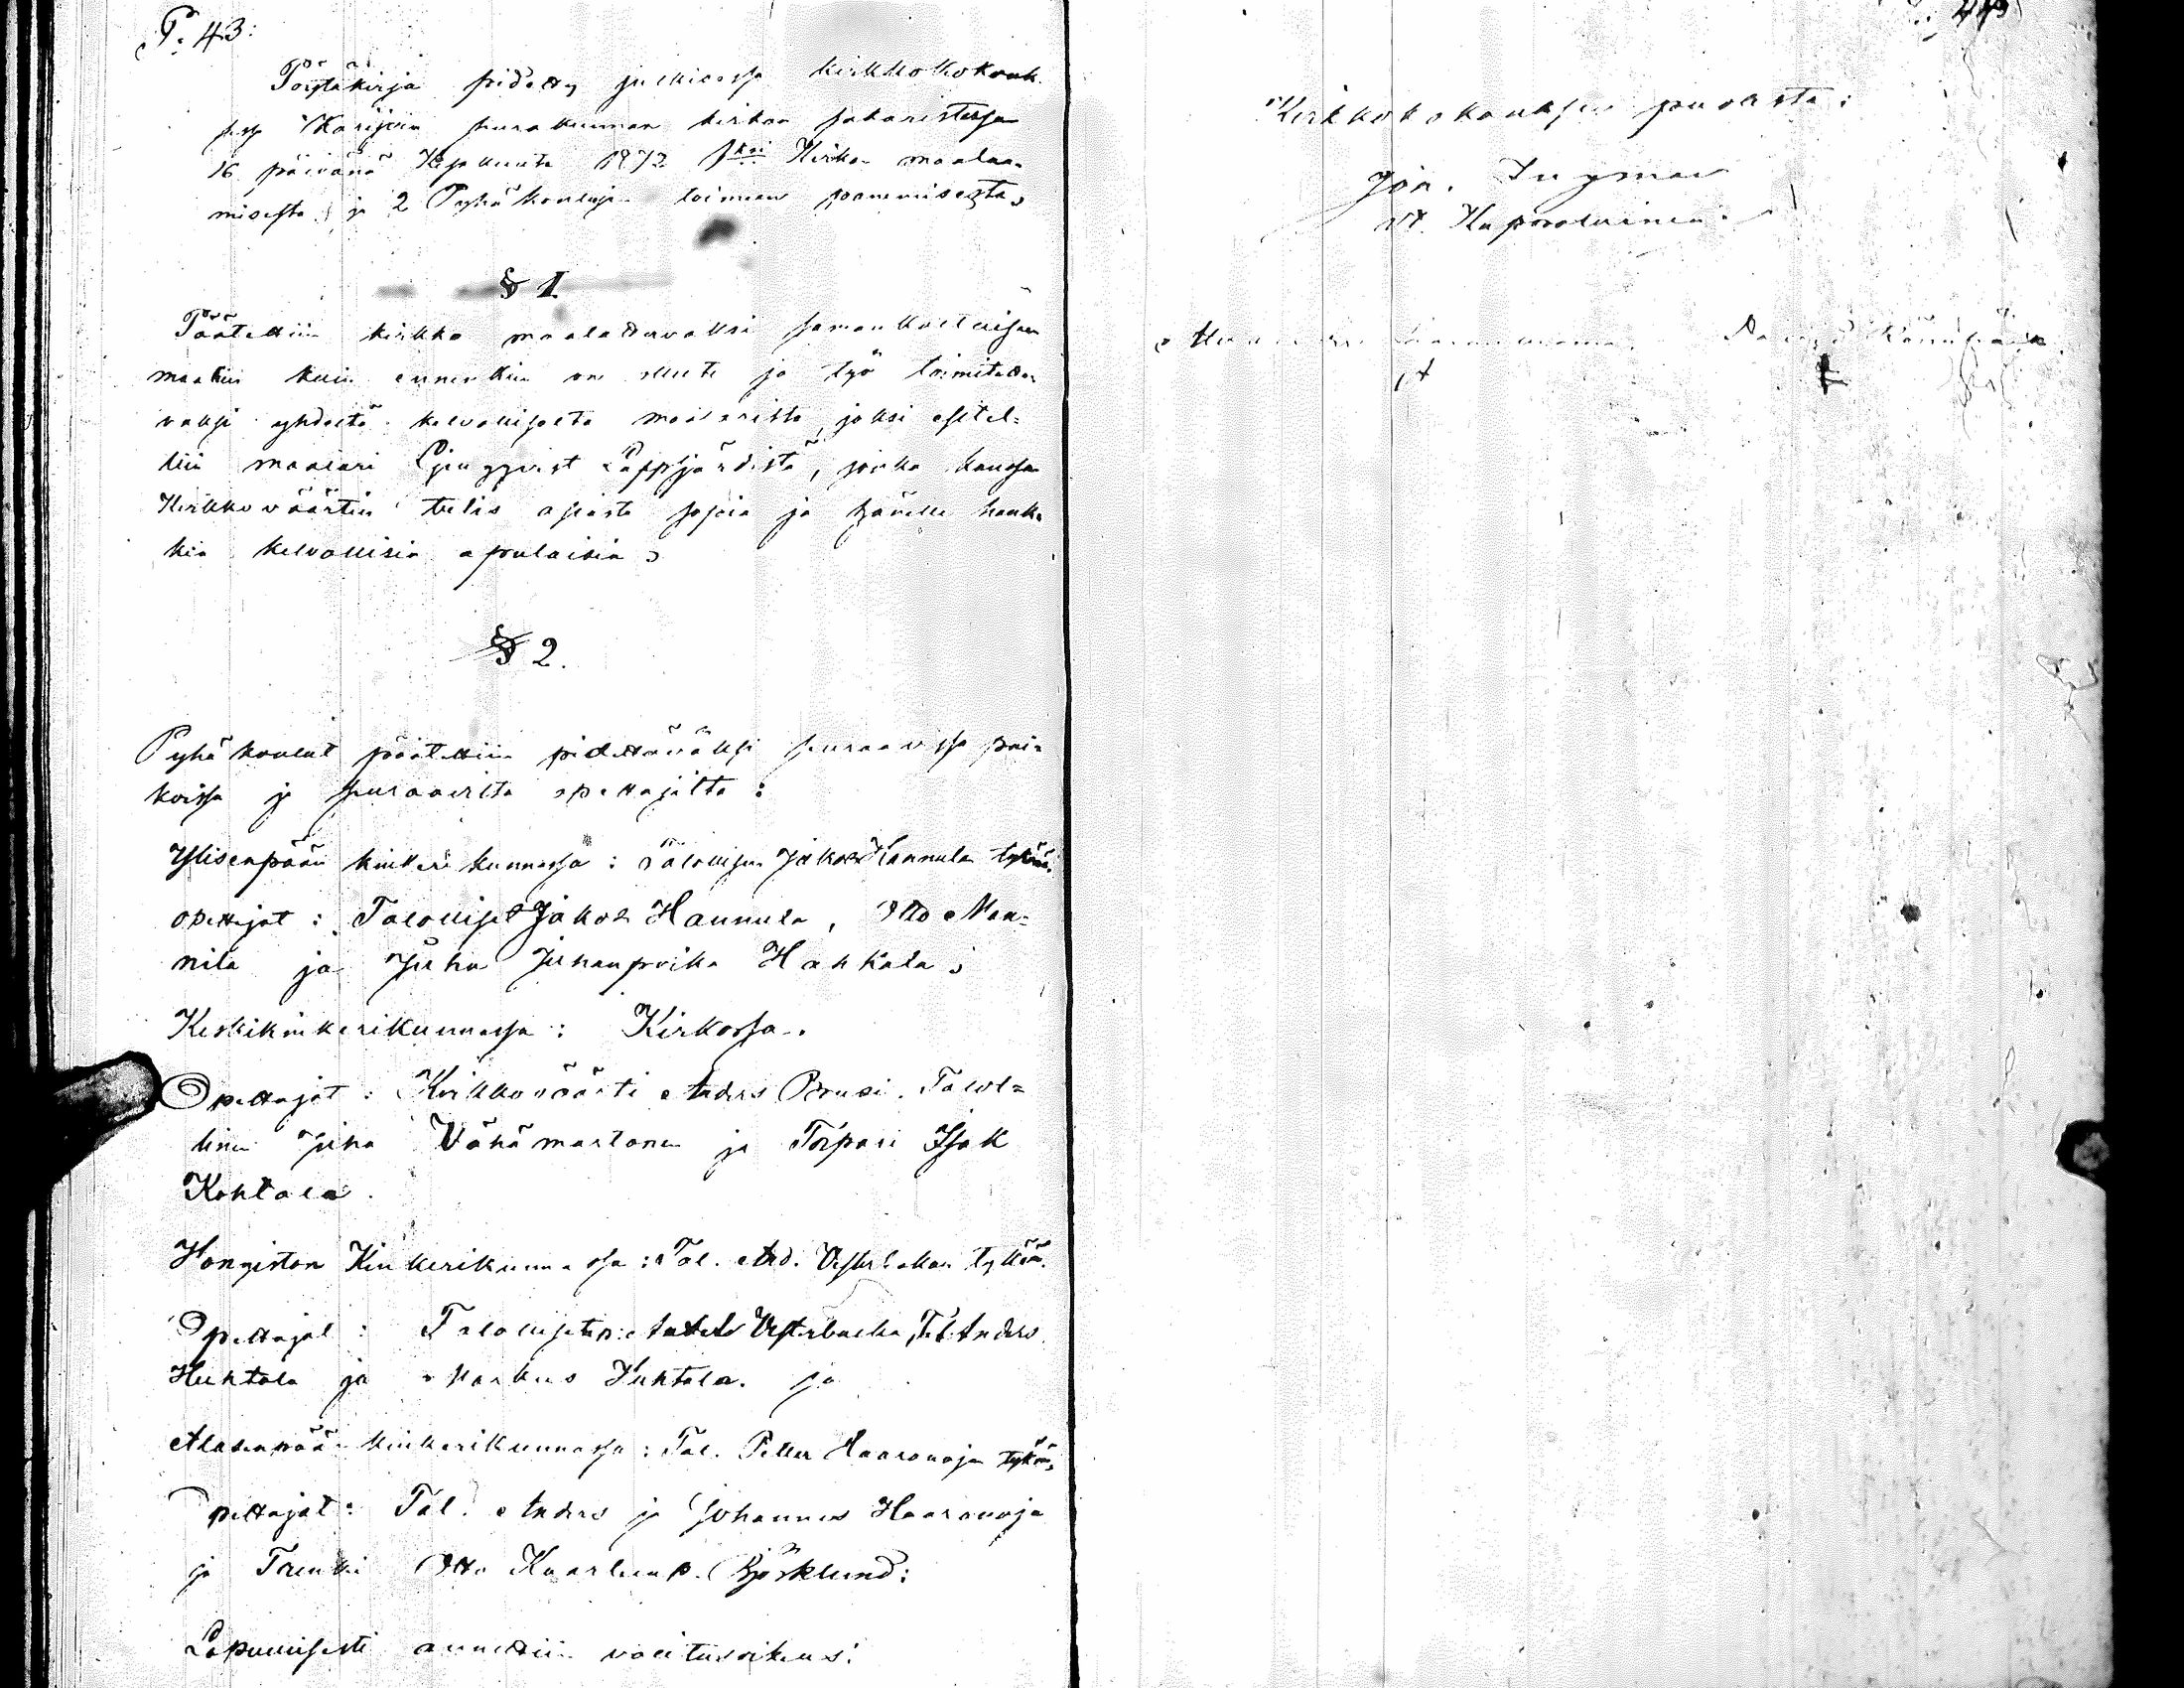 P: 43:
Pöytäkirja pidetty julkisessa kirkkokokouk-
sessa Karijoen seurakunnan kirkon sakaristossa
16 päivänä Kesäkuuta 1872 1ksi Kirkon maalaa-
misesta ja 2 Pyhäkoulujen toimeen panemisesta.
§ 1
Päätettiin kirkko maalattavaksi samankaltaisen
maalin kuin ennenkin on ollut ja työ toimitetta-
vaksi yhdeltä kelvolliselta maalarilta, joksi esitel-
tiin maalari Ljungqvist Lappfjärdistä, jonka kanssa
Kirkkoväärtin tulis asiasta sopia ja hänelle hank-
kia kelvollisia apulaisia.
§ 2.
Pyhäkoulut päätettiin pidettäväksi seuraavissa pai-
koissa ja seuraavilta opettajilta:
Ylisenpään kinkerikunnassa: Talollisen Jakob Hannulan tykönä.
Opettajat: Talolliset Jakob Hannula, Otto Man-
nila ja Juha Juhanpoika Hakkala;
Keskikinkerikunnassa: Kirkossa.
Opettajat: Kirkkoväärti Anders Prusi. Talol-
linen Juha Vähämartonen ja Torpari Isak
Kohtala.
Hongiston Kinkerikunnassa: Tal. And. Vesterbakan tykönä.
Opettajat: Talolliset Vesterbacka, Tal. Anders
Huhtala ja Markus Huhtala. ja
Alasenpään kinkerikunnassa: Tal. Petter Haaranojan tykönä,
Opettajat: Tal. Anders ja Johannes Haaranoja
ja Trenki Otto Kaarleanp. Björklund:
Lopullisesti annettiin valitusoikeus:
Kirkkokokouksen puolesta:
Joh. Ingman
vt. Kappalainen.